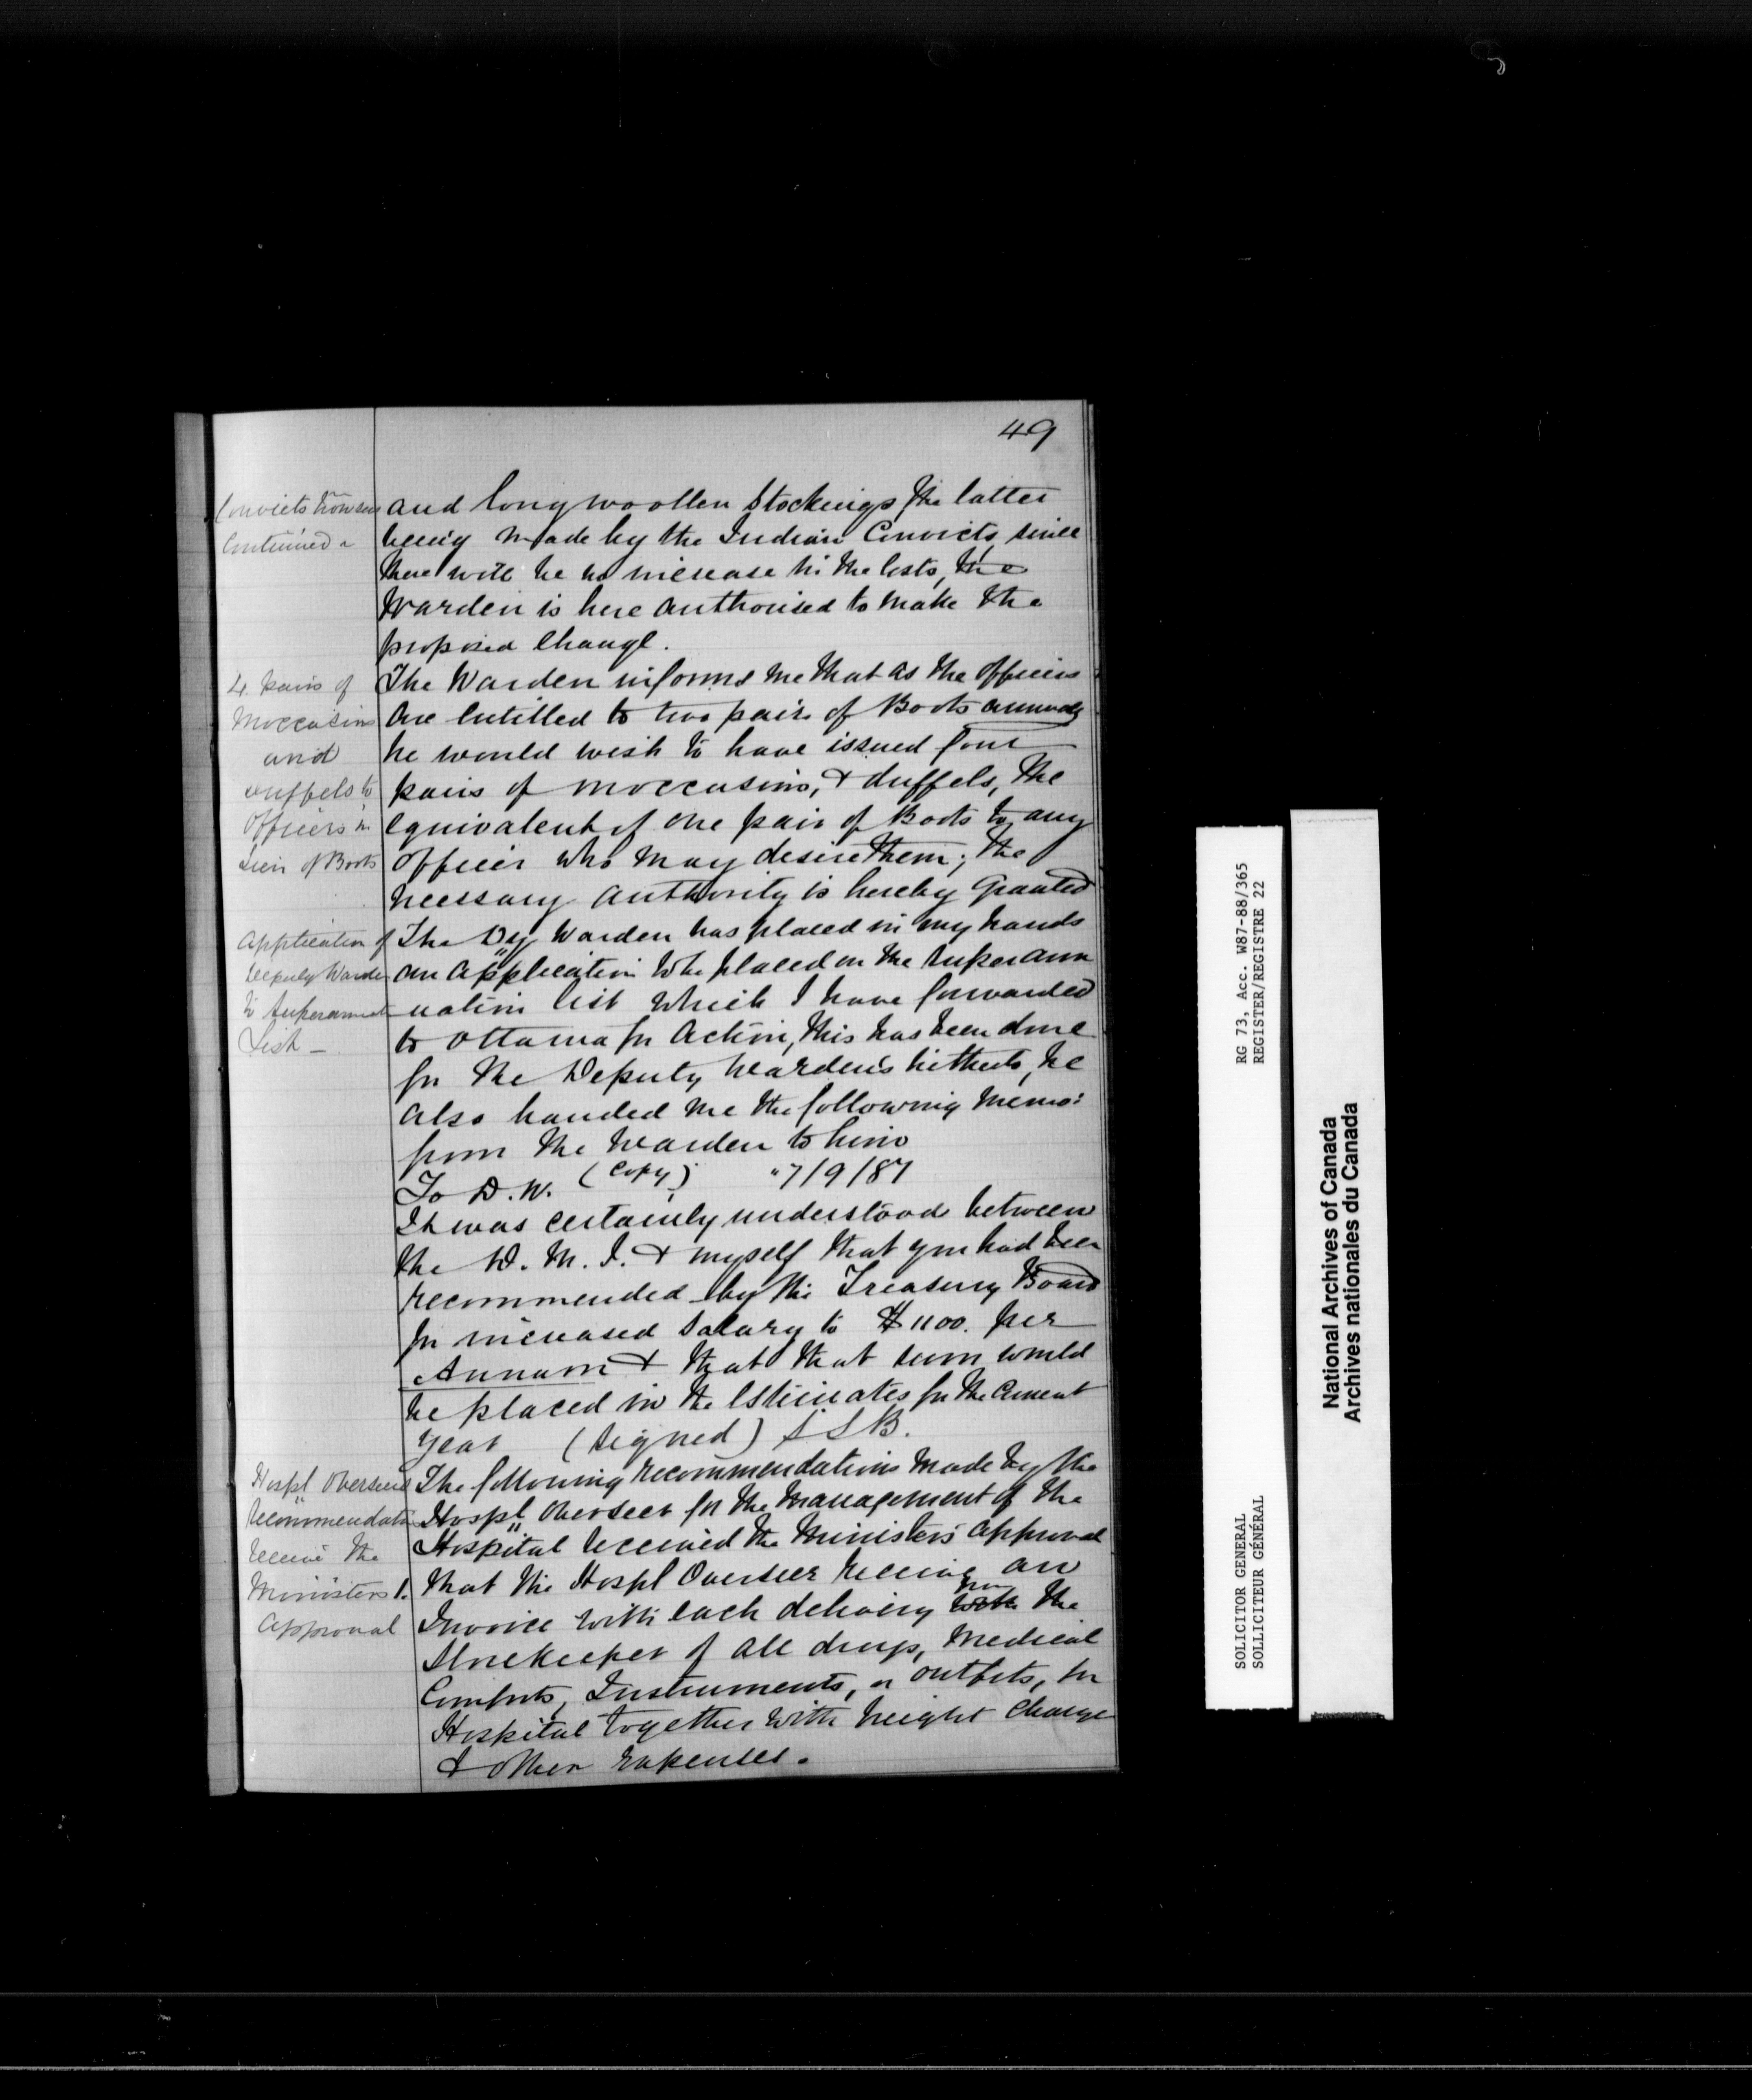 49
Convicts Trowsers
Continued
and long woollen stockings, the latter
being made by the Indian Convicts, since
there will be no increase in the costs, the
Warden is here authorised to make the
proposed change.
4 pairs of
Moccasins
and
duffels to
Officers in
Lieu of Boots
The Warden informs me that as the officers
are entitled to two pairs of Boots annualy
he would wish to have issued four
pairs of moccasins, & duffels, the
equivalent of one pair of Boots to any
officer who may desire them; the
necessary authority is hereby granted
Application of
Deputy Warden
to Superannuat
List —
The Dy Warden has placed in my hands
an application to be placed on the superann
uation list which I have forwarded
to Ottawa for action, this has been done
for the Deputy Warden's hitherto, he
also handed me the following memo:
from the Warden to him
To D. W. (Copy) "7/9/87
It was certainly understood between
the D. M. J. & myself that you had been
recommended by the Treasury Board
for increased salary to $1100. per
Annum & that that sum would
be placed in the Estimates for the current
year (signed) S L B.
Hospl Overseers
recommendation
receive the
Ministers
Approval
The following recommendations made by the
Hospl Overseer for the management of the
Hospital received the Ministers approval
1. that the Hospl Overseer receive an
Invoice with each delivery from the
Storekeeper of all drugs, medical
Comforts, Instruments, or outfits, for
Hospital together with freight charge
& other expenses.
RG 73, Acc. W87-88/365
REGISTER/REGISTRE 22
SOLICITOR GENERAL
SOLLICITEUR GÉNÉRAL
National Archives of Canada
Archives nationales du Canada